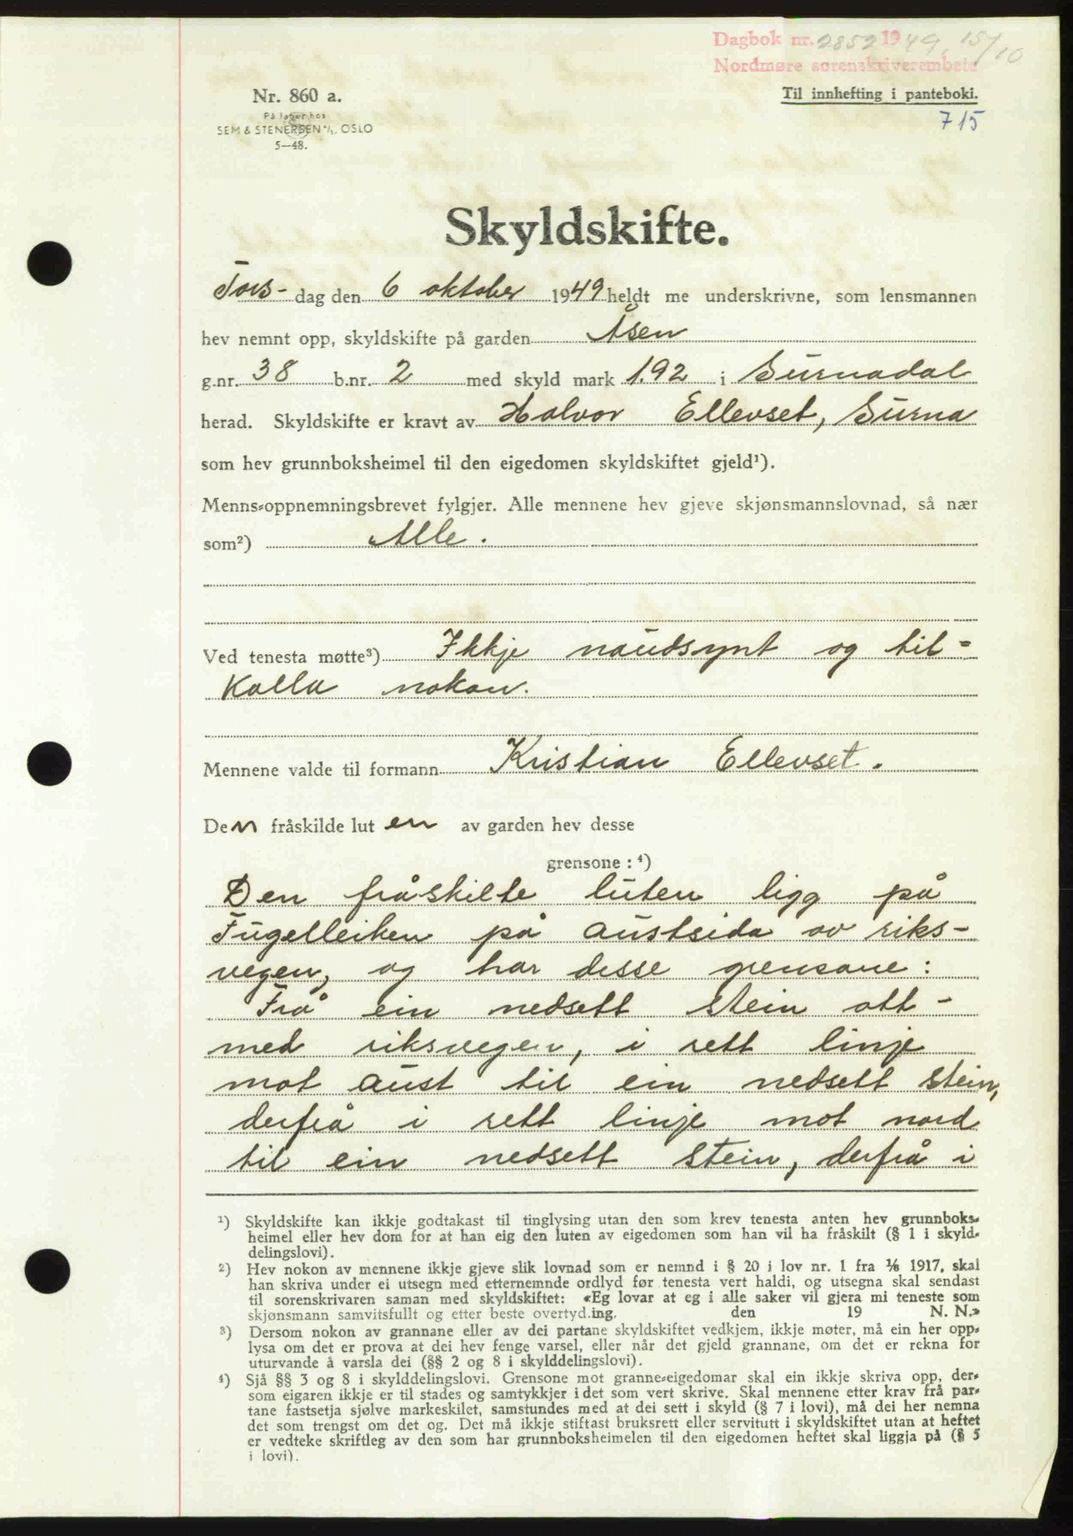 Dagbok nr. 2852 1949, 15/10
Nordmøre sorenskriverembete
Nr. 860 a.
På lager hos
SEM & STENERSEN A/S. OSLO
5—48.
Til innhefting i panteboki.
715
Skyldskifte.
Tors- dag den 6 oktober 1949 heldt me underskrivne, som lensmannen
hev nemnt opp, skyldskifte på garden Åsen
g.nr. 38 b.nr. 2 med skyld mark 1.92 i Surnadal
herad. Skyldskifte er kravt av Halvor Ellevset, Surna
som hev grunnboksheimel til den eigedomen skyldskiftet gjeld¹).
Menns-oppnemningsbrevet fylgjer. Alle mennene hev gjeve skjønsmannslovnad, så nær
som²) Alle.
Ved tenesta møtte³) Ikkje naudsynt og til-
kalla nokon.
Mennene valde til formann Kristian Ellevset.
Den fråskilde lut en av garden hev desse
grensone : ⁴)
Den fråskilte luten ligg på
Fugelleiken på austsida av riks-
vegen, og har desse grensone:
Frå ein nedsett stein att-
med riksvegen, i rett linje
mot aust til ein nedsett stein,
derfrå i rett linje mot nord
til ein nedsett stein, derfrå i
¹) Skyldskifte kan ikkje godtakast til tinglysing utan den som krev tenesta anten hev grunnboks-
heimel eller hev dom for at han eig den luten av eigedomen som han vil ha fråskilt (§ 1 i skyld-
delingslovi).
²) Hev nokon av mennene ikkje gjeve slik lovnad som er nemnd i § 20 i lov nr. 1 fra 1/6 1917, skal
han skriva under ei utsegn med etternemnde ordlyd før tenesta vert haldi, og utsegna skal sendast
til sorenskrivaren saman med skyldskiftet: «Eg lovar at eg i alle saker vil gjera mi teneste som
skjønsmann samvitsfullt og etter beste overtyding. den 19 N. N.»
³) Dersom nokon av grannane eller av dei partane skyldskiftet vedkjem, ikkje møter, må ein her opp-
lysa om det er prova at dei hev fenge varsel, eller når det gjeld grannane, om det er rekna for
uturvande å varsla dei (§§ 2 og 8 i skylddelingslovi).
⁴) Sjå §§ 3 og 8 i skylddelingslovi. Grensone mot granne-eigedomar skal ein ikkje skriva opp, der-
som eigaren ikkje er til stades og samtykkjer i det som vert skrive. Skal mennene etter krav frå par-
tane fastsetja sjølve markeskilet, samstundes med at dei sett i skyld (§ 7 i lovi), må dei her nemna
det som trengst om det og. Det må ikkje stiftast bruksrett eller servitutt i skyldskiftet utan at heftet
er vedteke skriftleg av den som har grunnboksheimelen til den eigedomen heftet skal liggja på (§ 5
i lovi).